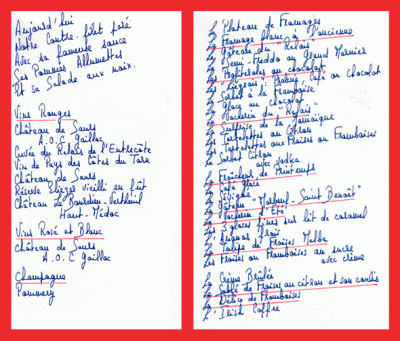 Aujourd'hui
Notre Contre-filet paré
Avec sa fameuse sauce
Ses Pommes Allumettes
Et sa Salade aux noix.
Vins Rouges
Château de Saurs
A.O.C Gaillac
Cuvée du Relais de l'Entrecôte
Vin de Pays des Côtes du Tarn
Château de Saurs
Réserve Eliezer vieilli en fût
Château Le Bourdieu-Vertheuil
Haut-Médoc
Vins Rosé et Blanc
Château de Saurs
A.O.C Gaillac
Champagne
Pommery
Le Plateau de Fromages
Le Fromage blanc à l'ancienne
Le Gâteau du "Relais"
Le Semi-Freddo au Grand Marnier
Les Profiteroles au chocolat
Les "Liégeois" Café ou chocolat
Le Sorbet à la Framboise
La Glace au chocolat
Le Vacherin du "Relais"
La Sultane de la Jamaïque
La Tartelette au Citron
Les Tartelettes aux Fraises ou Framboises
Le Sorbet Citron
avec Vodka
La Fraîcheur de Printemps
Le Café glacé
Le Gâteau "Mabeuf-Saint Benoît"
Le Vacherin d'Eté
Les 3 glaces fines sur lit de caramel
L'Ananas frais
La Tulipe de Fraises Melba
Les Fraises ou Framboises au sucre
avec crème
La Crème Brûlée
Le Sablé de Fraises au citron et son coulis
Le Délice de Framboises
L'Irish Coffee